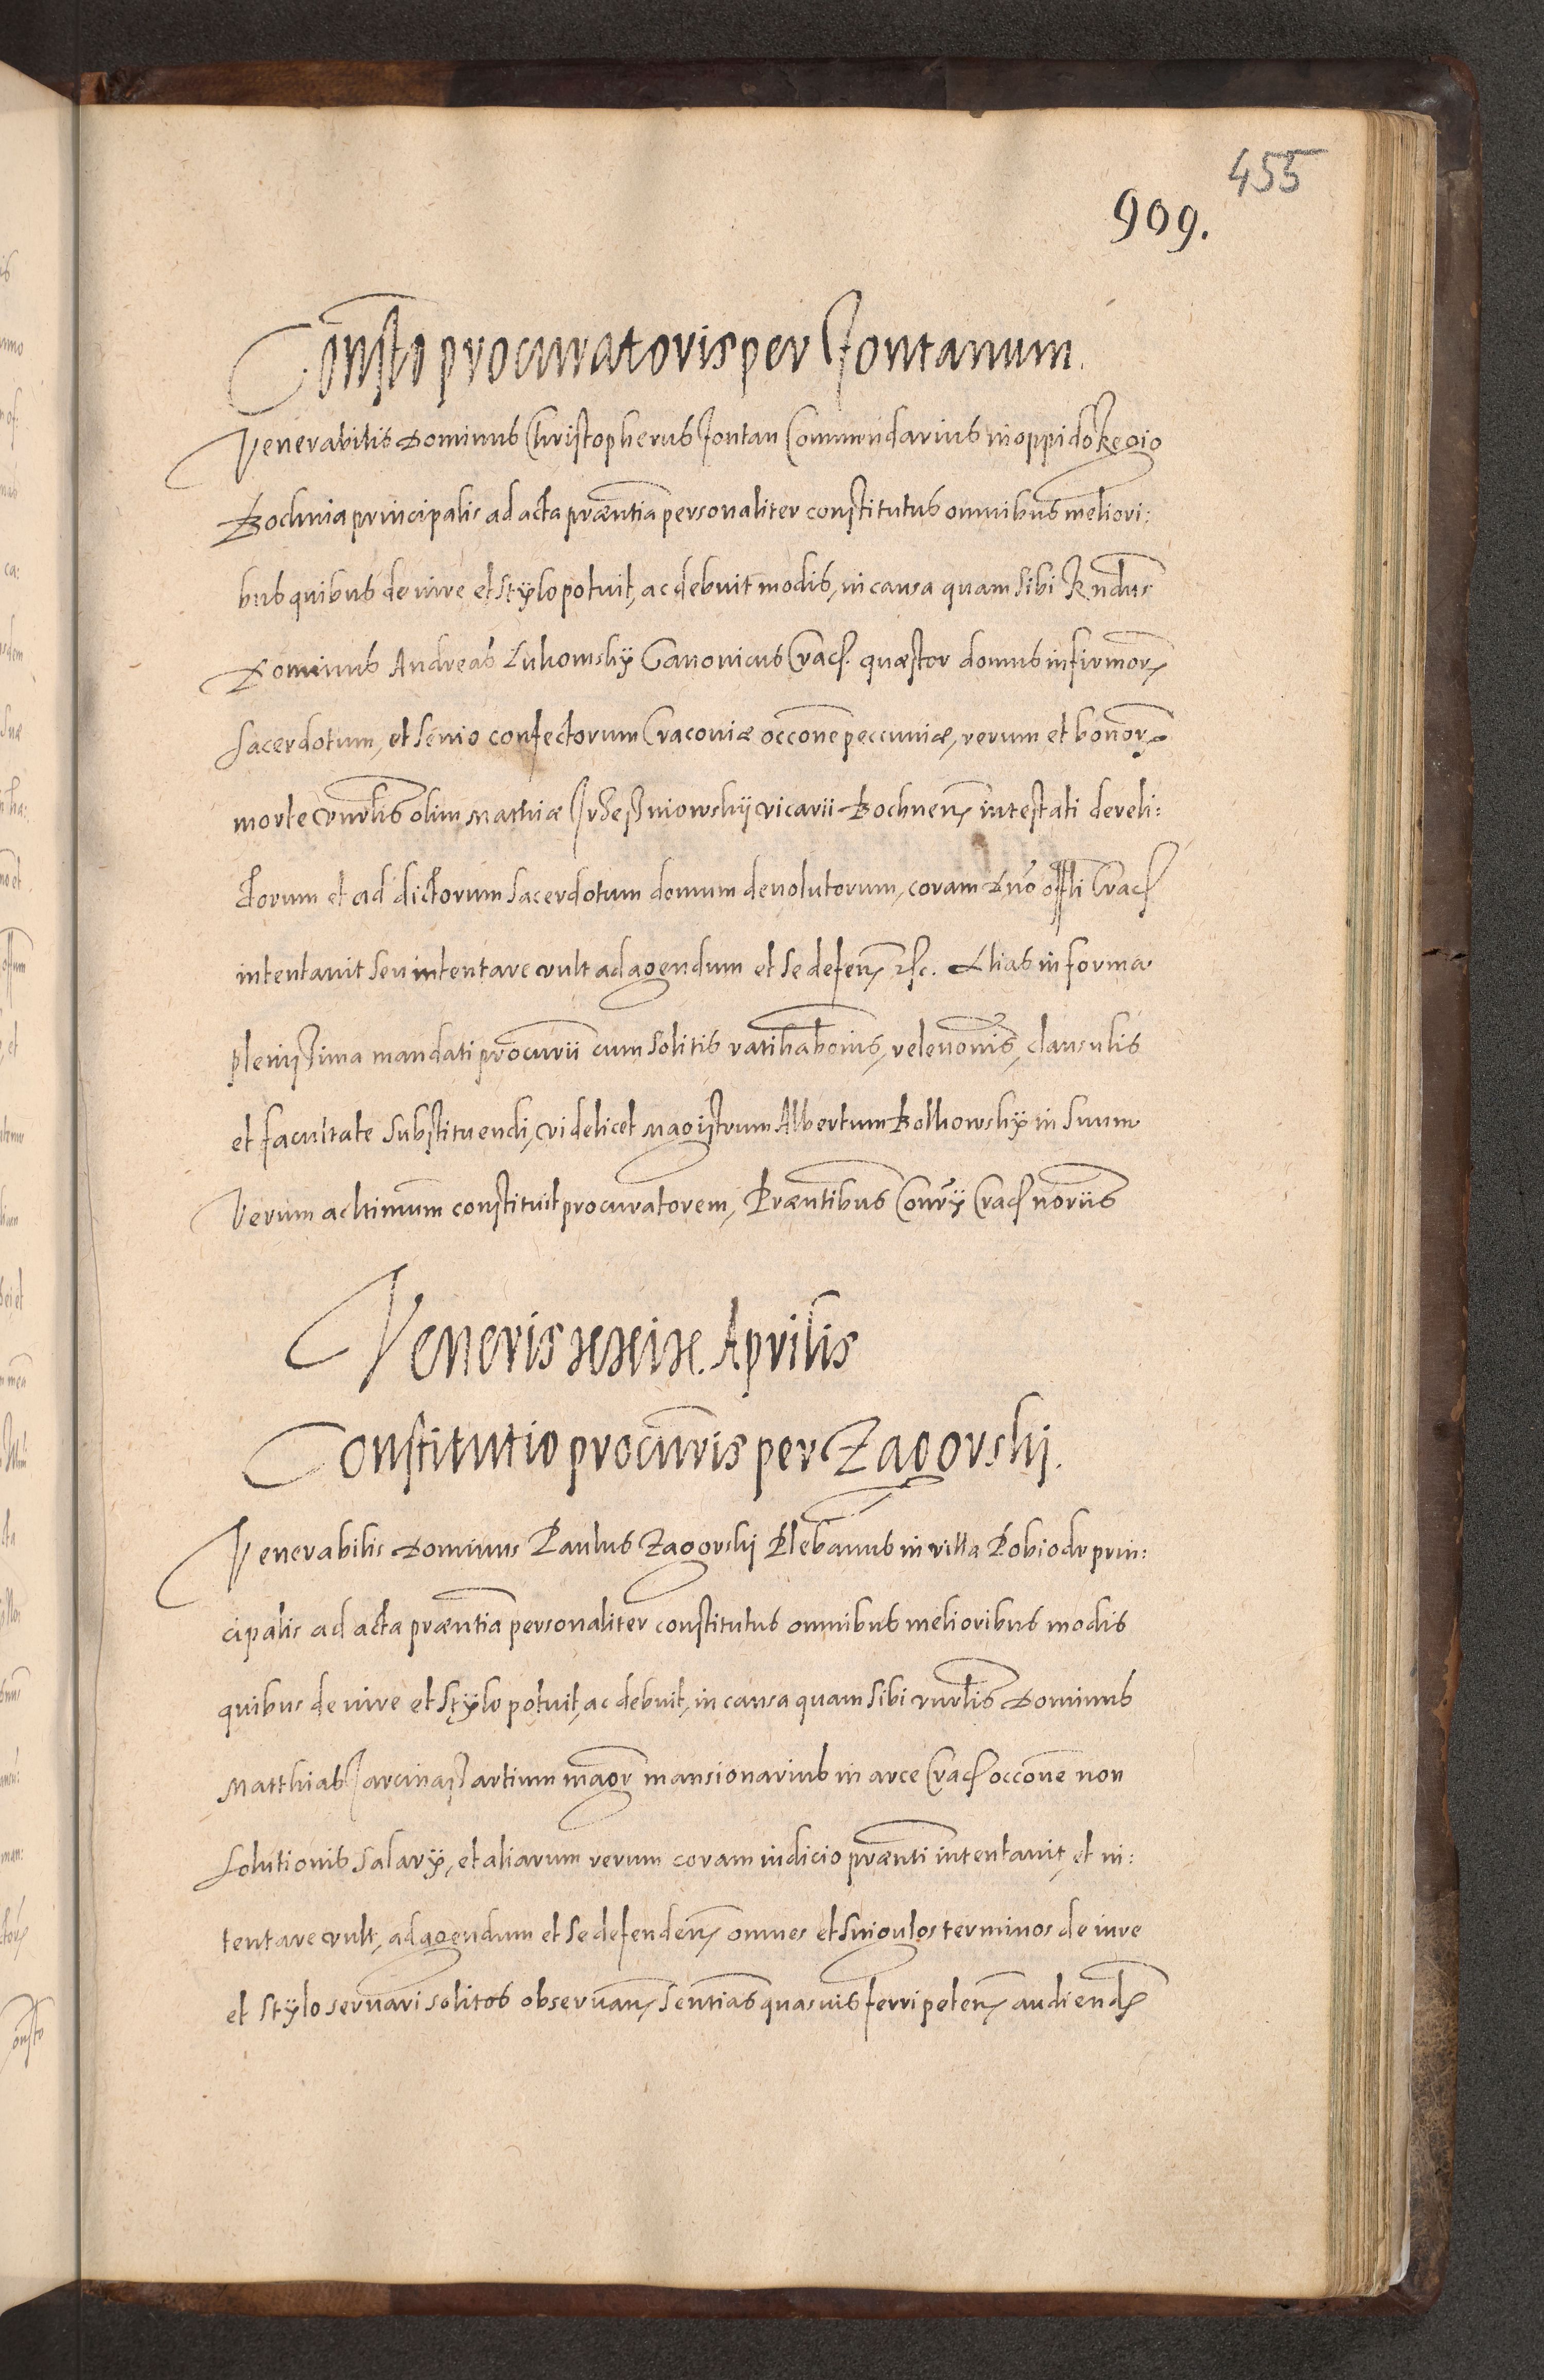 455
909.
Constō procuratoris per Jontanum.
Venerabilis Dominus Christopherus Jontan Commendarius in oppido Regio
Bochnia principalis ad acta præntia personaliter constitutus omnibus meliori:
bus quibus de iure et stylo potuit, ac debuit modis, in causa quam sibi Rndus
Dominus Andreas Lukomskÿ Canonicus Crac. quæstor domus infirmor
sacerdotum, et senio confectorum Cracoviæ occōne peccuniæ, rerum et bonor
morte vnrlis olim Mathiæ vicarii Bochnen intestati dereli:
ctorum et ad dictorum sacerdotum domum devolutorum, coram Dno offli Crac
intentavit seu intentare vult ad agendum et se defen etc. Alias in forma
plenissima mandati procurii cum solitis ratihabōnis, relevōnis, clausulis
et facultate substituendi, videlicet Magistrum Albertum Bolkowskÿ in suum
Verum ac ltimum constituit procuratorem, Præntibus Consrÿ Crac noriis
Veneris xxix. Aprilis
Constitutio procuris per Zagorski.
Venerabilis Dominus Paulus Zagorski Plebanus in villa Pobiodr prin:
cipalis ad acta præntia personaliter constitutus omnibus melioribus modis
quibus de iure et stylo potuit, ac debuit, in causa quam sibi vnrlis Dominus
Matthias artium magr mansionarius in arce Crac occōne non
solutionis salarÿ, et aliarum rerum coram iudicio prænti intentavit, et in:
tentare vult, ad agendum et se defenden omnes et singulos terminos de iure
et stylo servari solitos observan sentias quasvis ferri peten audiend